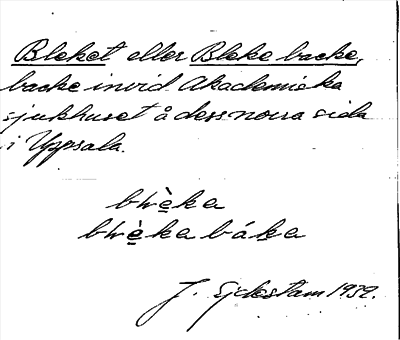 Bleket eller Bleke backe,
backe invid Akademiska
sjukhuset å dess norra sida
i Uppsala.
J. Ejdestam 1939.